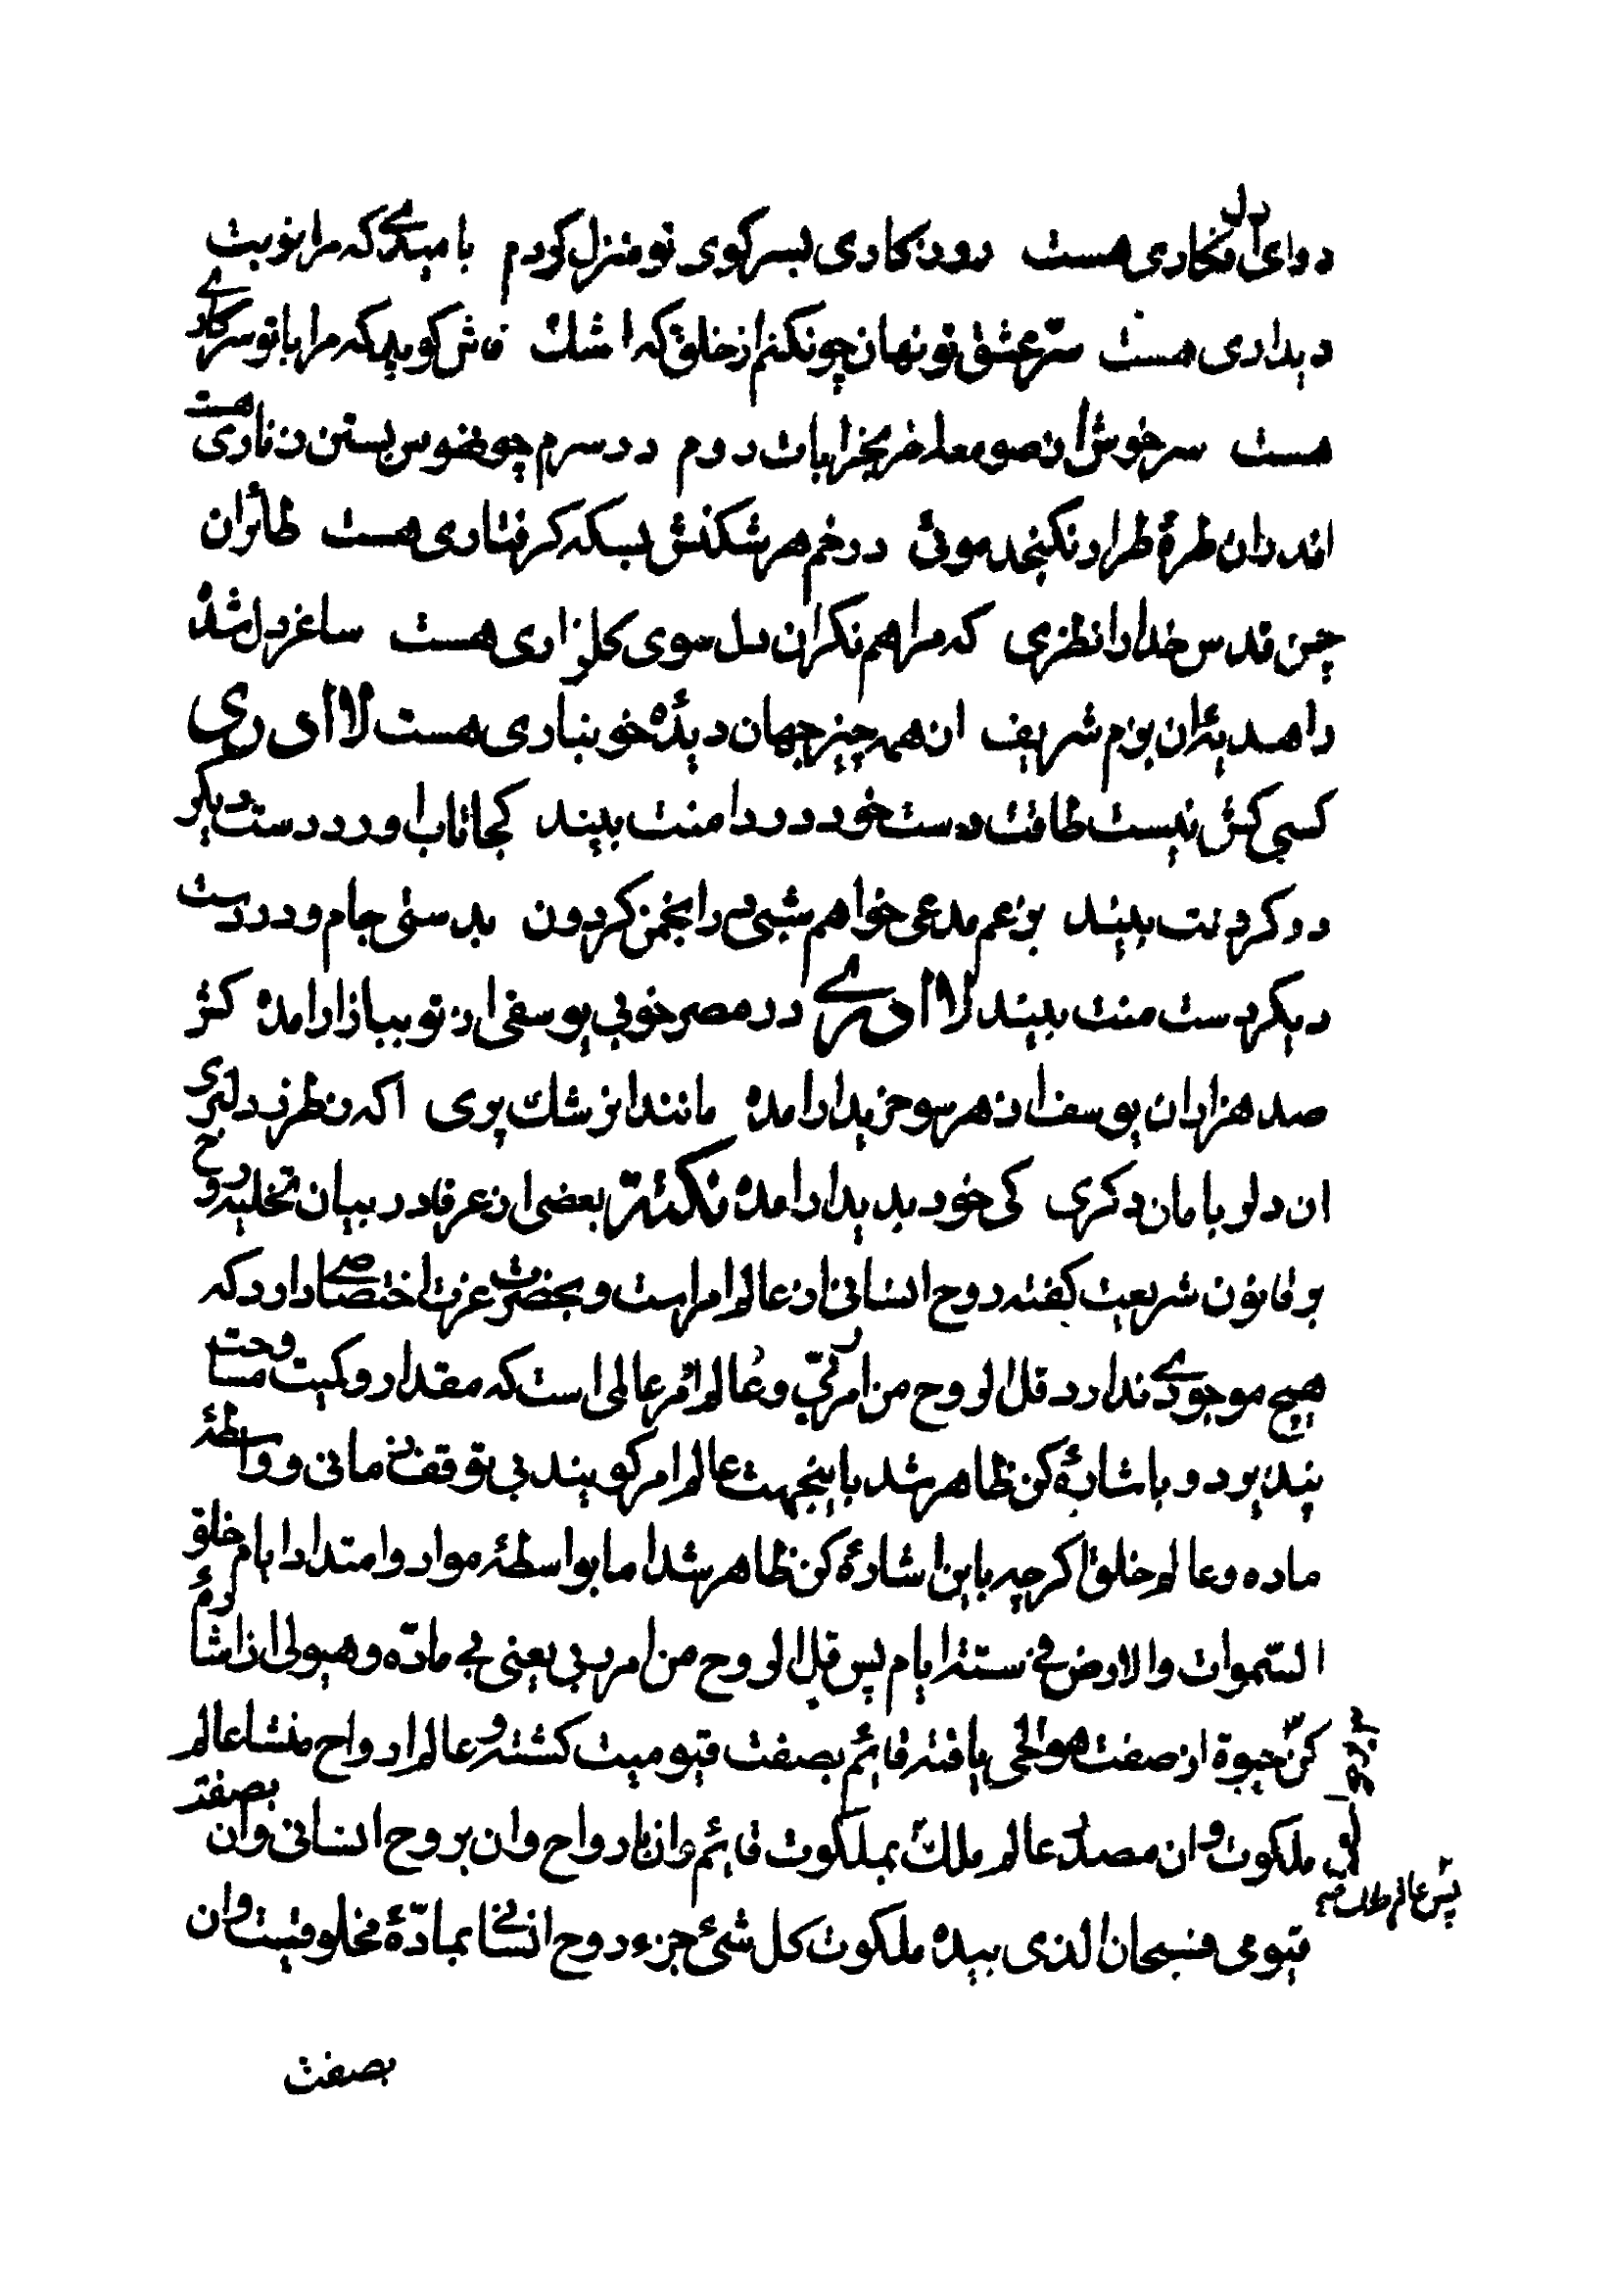 دوای دل افکاری هست روزکاری بسر کوی تو منزل کردم بامیدی که مرا نوبت
دیداری هست سرّ عشق تو نهان چون کنم از خلق که اشک فاش کوید که مرا با تو سرکاری
هست سرخوش از صومعه خر بخرابات روم در سرم چو هوس بستن زناری هست
اندران طرۀ طرار نکنجد موئی در خم هر شکنش بسکه کرفتاری هست طائران
چمن قدس خدا را نظری که مرا هم نکران دل سوی کلزاری هست ساغر دل شده
را هدیۀ ان بزم شریف از همه چیز جهان دیدۀ خونباری هست لا ادری
کسی کش نیست طاقت دست خود در دامنت بیند کجا تاب اورد دست دیکر
در کردنت بیند بزعم مدعی خواهم شبی در انجمن کردون بدستی جام و در دست
دیکر دست منت بیند لا ادری در مصر خوبی یوسفی از تو ببازار امده کش
صد هزاران یوسف از هر سو خریدار امده مانند از شک پری اکه ز طرز دلبری
ان دلربا مان دکری کی خود بدیدار امده نکتة بعضی از عرفا در بیان تخلیه روح
بر قانون شریعت کفته روح انسانی از عالم امر است و بحضرت عزت اختصاصی دارد که
هیچ موجودی ندارد قل الروح من امر ربّی و عالم امر عالمی است که مقدار و کمیت و مساحت
نپذیرد و باشارۀ کن ظاهر شد باینجهت عالم امر کویند بی توقف زمانی و واسطۀ
ماده و عالم خلق اکرچه باین اشارۀ کن ظاهر شد اما بواسطۀ مواد و امتداد ایام خلق
السّموات والارض فی ستة ایام پس قل الروح من امر ربی یعنی بی مادّه و هیولی از اشارۀ
کن حیوة از صفت هو الحی یافته قائم بصفت قیومیت کشته و عالم ارواح منشا عالم
ملکوت و ان مصدر عالم ملک بملکوت قائم و ان بارواح و ان بروح انسانی و ان بصفت
قیومی فسبحان الذی بیده ملکوت کل شیء جزء روح انسانی بمادّۀ مخلوقیت و ان
بصفت